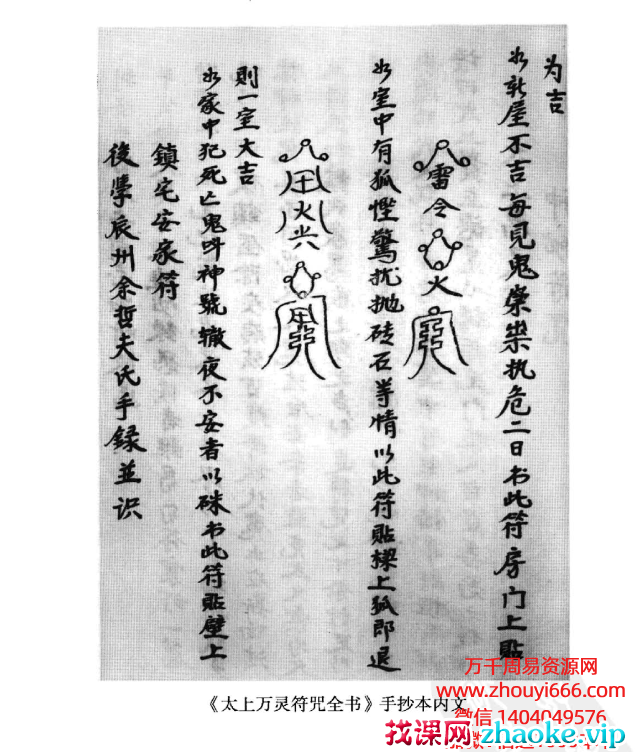 为吉
如新屋不吉每見鬼祟执危二日书此符房门上貼
雷令火
如室中有狐惺驚扰抛砖石等情以此符貼樑上狐即退
田火
則一室大吉
如家中犯死亡鬼叫神號辙夜不安者以硃书此符貼壁上
鎮宅安家符
後學辰州余哲夫氏手録並识
《太上万灵符咒全书》手抄本内文
万千周易资源网
www.zhouyi666.com
微信 1404049576
找课网zhaoke.vip